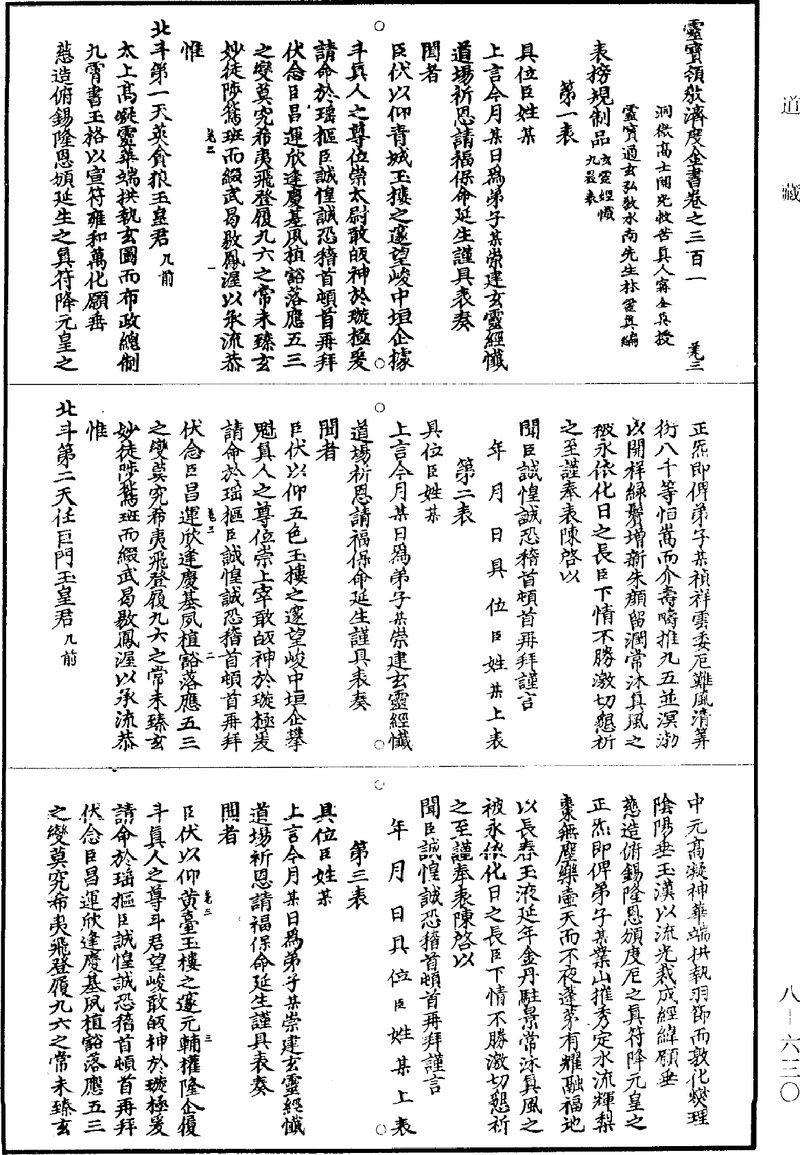 道藏
八—六三〇
靈寶領教濟度金書卷之三百一 業三
洞微高士開光救苦真人甯全真授
靈寶通玄弘教水南先生林靈真編
表榜規制品 玄靈經懺九晨表
第一表
具位臣姓某
上言今月某日為弟子某崇建玄靈經懺
道場祈恩請福保命延生謹具表奏
聞者
臣伏以仰青城玉樓之邃望峻中垣企據
斗真人之尊位崇太尉敢皈神於璇極爰
請命於瑶樞臣誠惶誠恐稽首頓首再拜
伏念臣昌運欣逢慶基夙植豁落應五三
之變莫究希夷飛登履九六之常未臻玄
妙徒陟鵷班而綴武曷敭鳳渥以承流恭
惟
北斗第一天英貪狼玉皇君几前
太上高凝靈華端拱執玄圖而布政總制
九霄書玉格以宣符雍和萬化願垂
慈造俯錫隆恩頒延生之真符降元皇之
正炁即俾弟子某禎祥雲委厄難風清筭
衍八千等恒嵩而介壽疇推九五並溟渤
以開祥綠鬢增新朱顏留潤常沐真風之
被永依化日之長臣下情不勝激切懇祈
之至謹奉表陳啓以
聞臣誠惶誠恐稽首頓首再拜謹言
年月日具位臣姓某上表
第二表
具位臣姓某
上言今月某日為弟子某崇建玄靈經懺
道場祈恩請福保命延生謹具表奏
聞者
臣伏以仰五色玉樓之邃望峻中垣企攀
魁真人之尊位崇上宰敢皈神於璇極爰
請命於瑶樞臣誠惶誠恐稽首頓首再拜
伏念臣昌運欣逢慶基夙植豁落應五三
之變莫究希夷飛登履九六之常未臻玄
妙徒陟鵷班而綴武曷敭鳳渥以承流恭
惟
北斗第二天任巨門玉皇君几前
中元高凝神華端拱執羽節而敦化燮理
陰陽垂玉漢以流光裁成經緯願垂
慈造俯錫隆恩頒度厄之真符降元皇之
正炁即俾弟子某業山摧秀定水流輝梨
棗無塵藥壺天而不夜蓬茅有耀融福地
以長春玉液延年金丹駐景常沐真風之
被永依化日之長臣下情不勝激切懇祈
之至謹奉表陳啓以
聞臣誠惶誠恐稽首頓首再拜謹言
年月日具位臣姓某上表
第三表
具位臣姓某
上言今月某日為弟子某崇建玄靈經懺
道場祈恩請福保命延生謹具表奏
聞者
臣伏以仰黄臺玉樓之邃元輔權隆企履
斗真人之尊斗君望峻敢皈神於璇極爰
請命於瑶樞臣誠惶誠恐稽首頓首再拜
伏念臣昌運欣逢慶基夙植豁落應五三
之變莫究希夷飛登履九六之常未臻玄